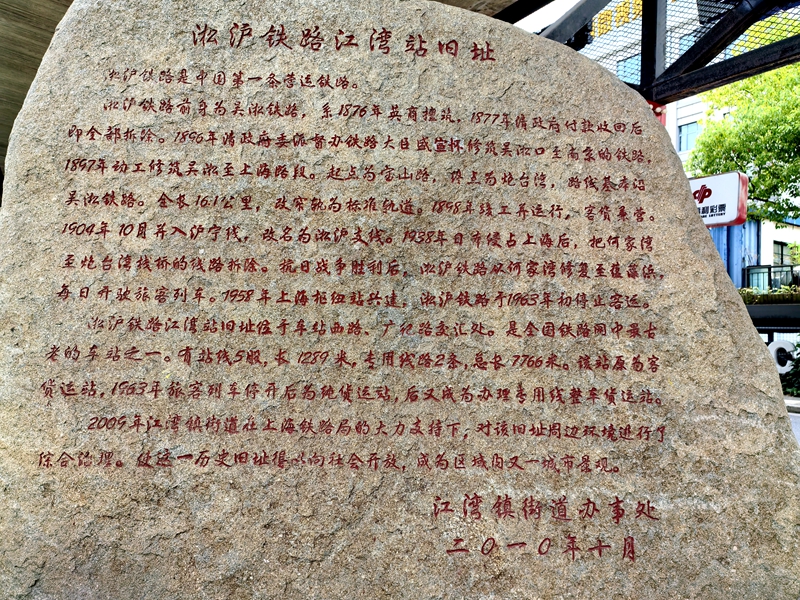 淞沪铁路江湾站旧址
淞沪铁路是中国第一条营运铁路。
淞沪铁路前身为吴淞铁路，系1876年英商擅筑，1877年清政府付款收回后
即全部拆除。1896年清政府委派督办铁路大臣盛宣怀修筑吴淞口至南京的铁路，
1897年动工修筑吴淞至上海路段。起点为宝山路，终点为炮台湾，路线基本沿
吴淞铁路。全长16.1公里，改窄轨为标准轨道。1898年竣工并运行，客货兼营。
1904年10月并入沪宁线，改名为淞沪支线。1938年日军侵占上海后，把何家湾
至炮台湾栈桥的线路拆除。抗日战争胜利后，淞沪铁路从何家湾修复至蕴藻浜，
每日开驶旅客列车。1958年上海枢纽站兴建，淞沪铁路于1963年初停止客运。
淞沪铁路江湾站旧址位于车站西路、广纪路交汇处。是全国铁路网中最古
老的车站之一。有站线5股，长1289米，专用线路2条，总长7766米。该站原为客
货运站，1963年旅客列车停开后为纯货运站，后又成为办理专用线整车货运站。
2009年江湾镇街道在上海铁路局的大力支持下，对该旧址周边环境进行了
综合治理。使这一历史旧址得以向社会开放，成为区域内又一城市景观。
江湾镇街道办事处
二〇一〇年十月
利彩票